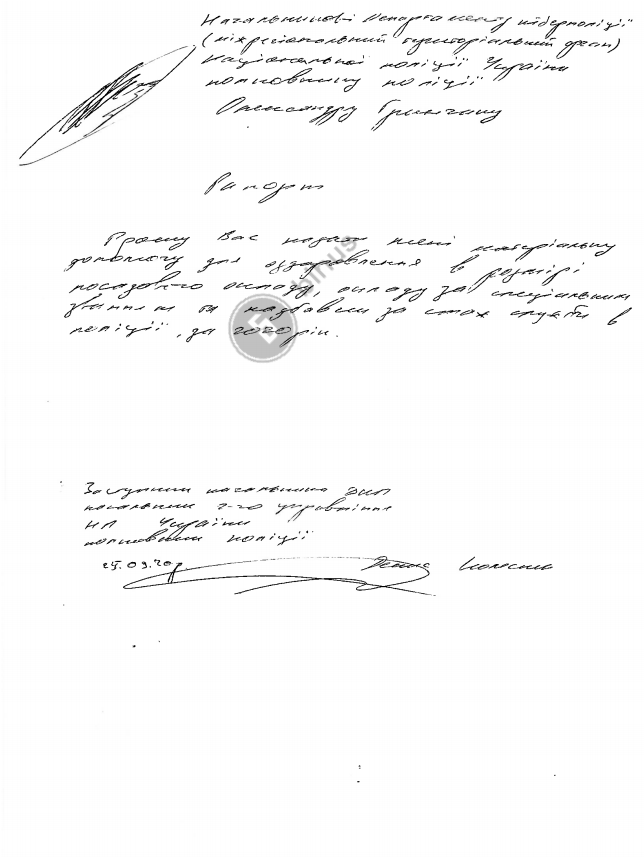 Начальникові Департаменту кіберполіції
(міжрегіональний територіальний орган)
Національної поліції України
полковнику поліції
Олександру Гринчаку
Рапорт
Прошу Вас надати мені матеріальну
допомогу для оздоровлення в розмірі
посадового окладу, окладу за спеціальним
званням та надбавки за стаж служби в
поліції, за 2020 рік.
Заступник начальника
начальник 2-го управління
НП України
полковник поліції
25.09.20р Денис Колесник
binus